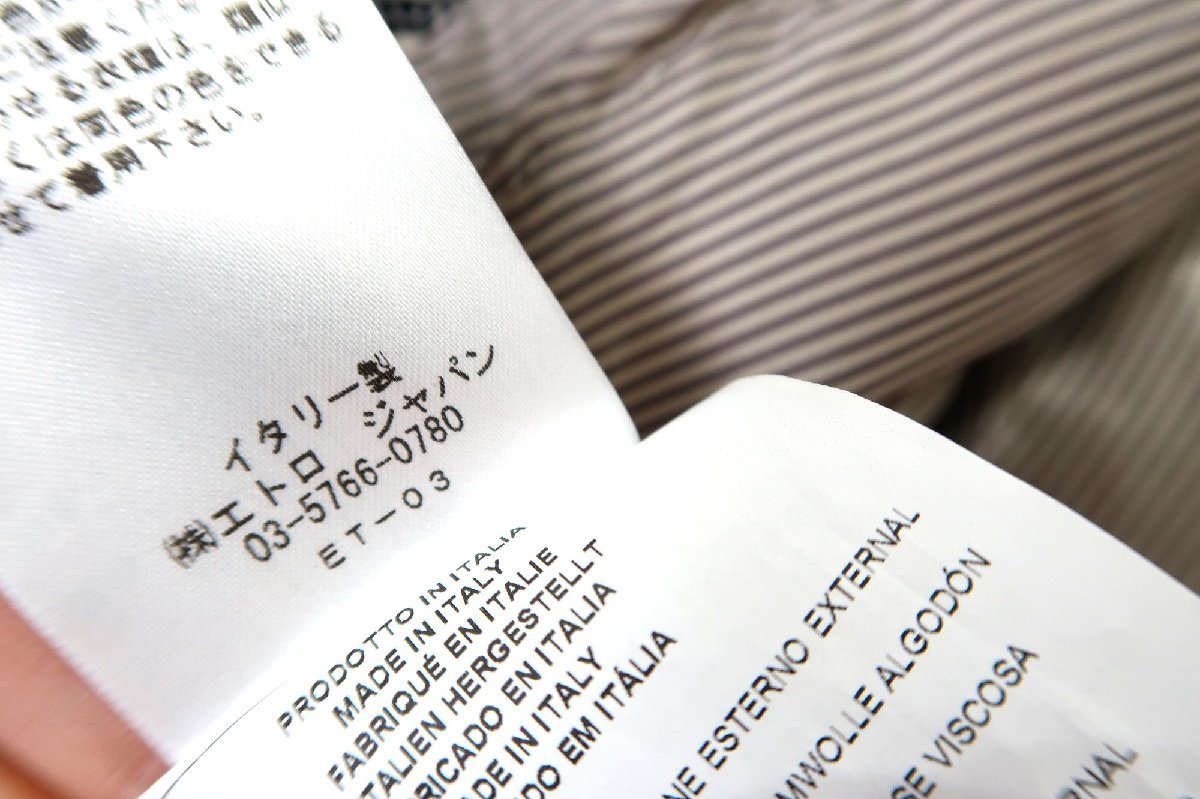 させる衣類は、
は同色の色をできる
せて着用下さい。
イタリー製
㈱エトロ ジャパン
03-5766-0780
ET-03
PRODOTTO IN ITALIA
MADE IN ITALY
FABRIQUÉ EN ITALIE
ITALIEN HERGESTELLT
RICADO EN ITALIA
DE IN ITALY
DO EM ITÁLIA
NE ESTERNO EXTERNAL
MWOLLE ALGODÓN
SE VISCOSA
RNAL